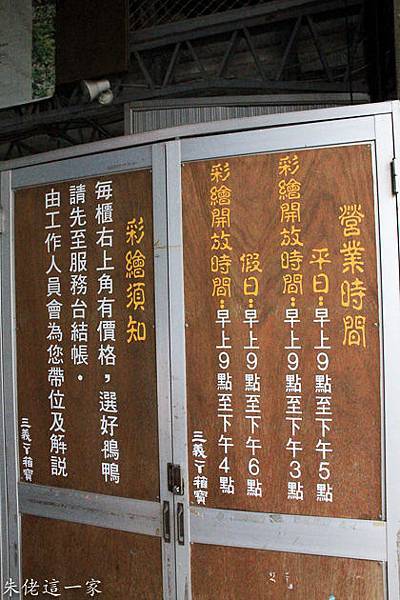 營業時間
平日：早上9點至下午5點
彩繪開放時間：早上9點至下午3點
假日：早上9點至下午6點
彩繪開放時間：早上9點至下午4點
三義丫箱寶
彩繪須知
每櫃右上角有價格，選好鴨鴨
請先至服務台結帳．
由工作人員會為您帶位及解說
三義丫箱寶
朱佬這一家